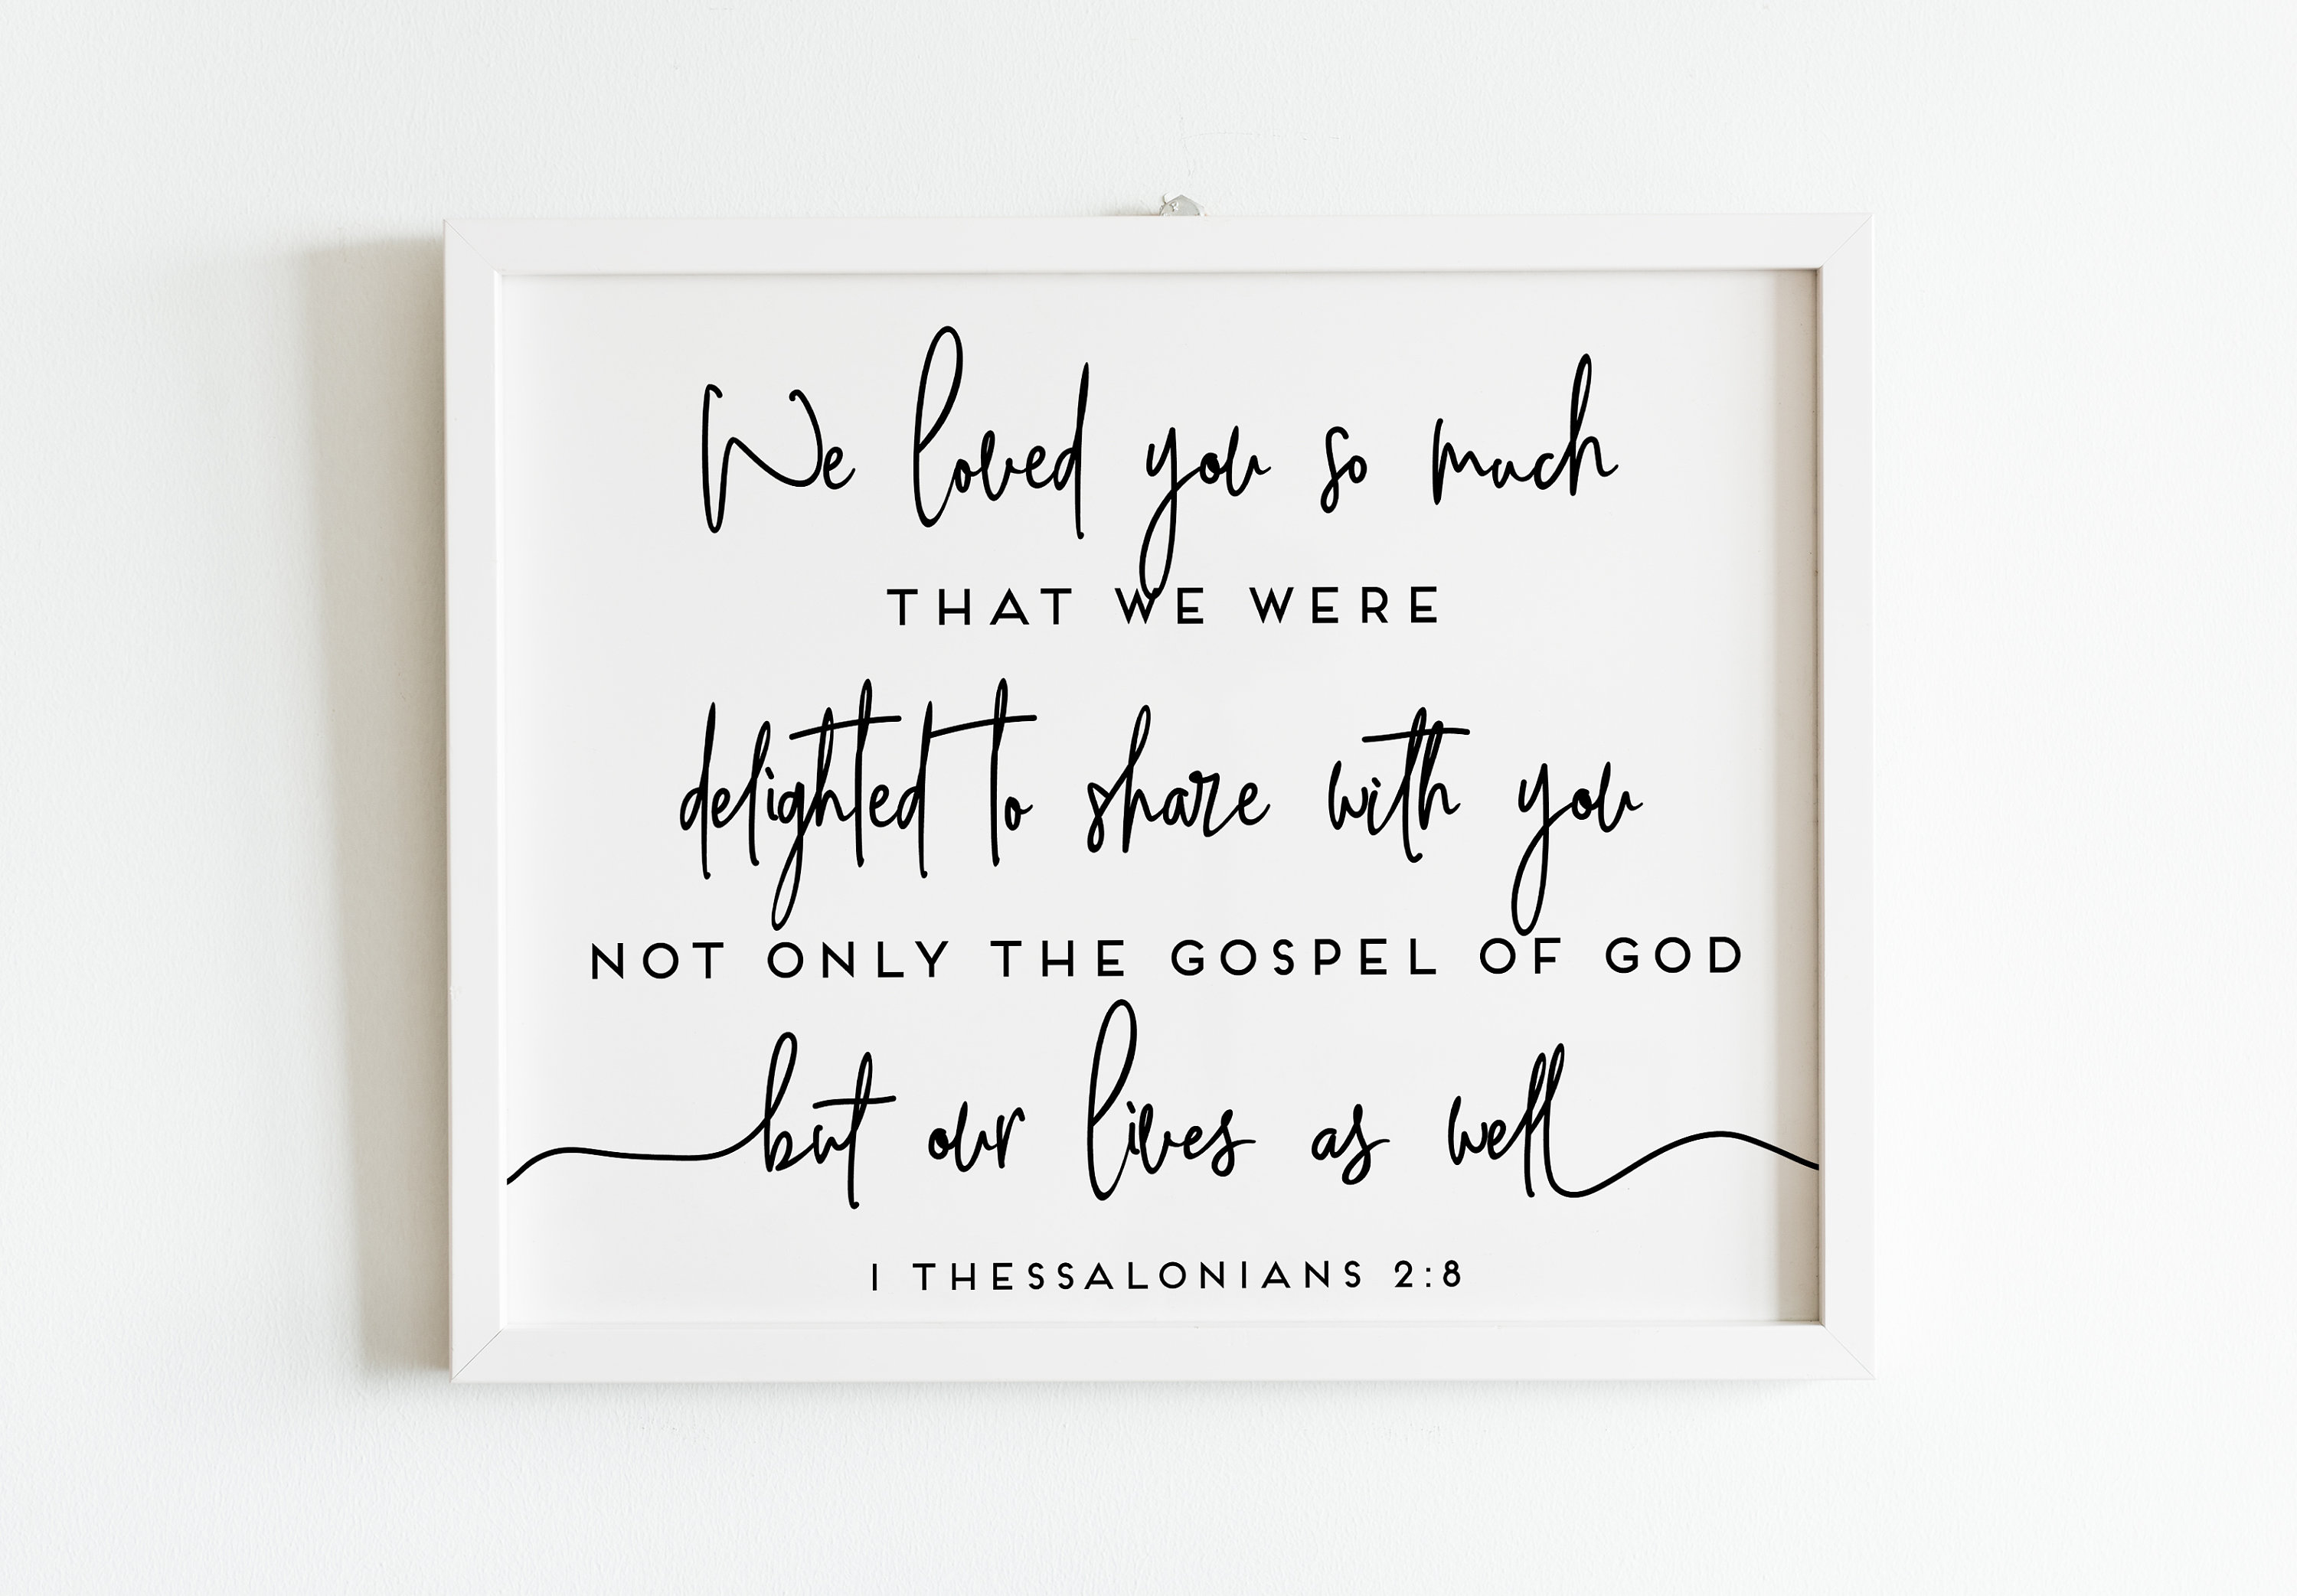 We loved you so much
THAT WE WERE
delighted to share with you
NOT ONLY THE GOSPEL OF GOD
but our lives as well
1 THESSALONIANS 2:8